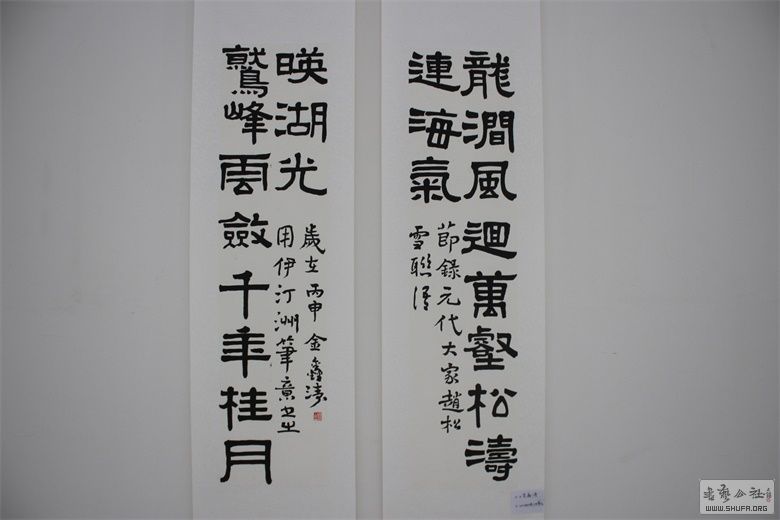 龍澗風迴萬壑松濤
連海氣
節錄元代大家趙松
雪聯語
鷲峰雲斂千年桂月
暎湖光
用伊汀洲筆意書之
歲在丙申金鑫
書藝公社
WWW.SHUFA.ORG